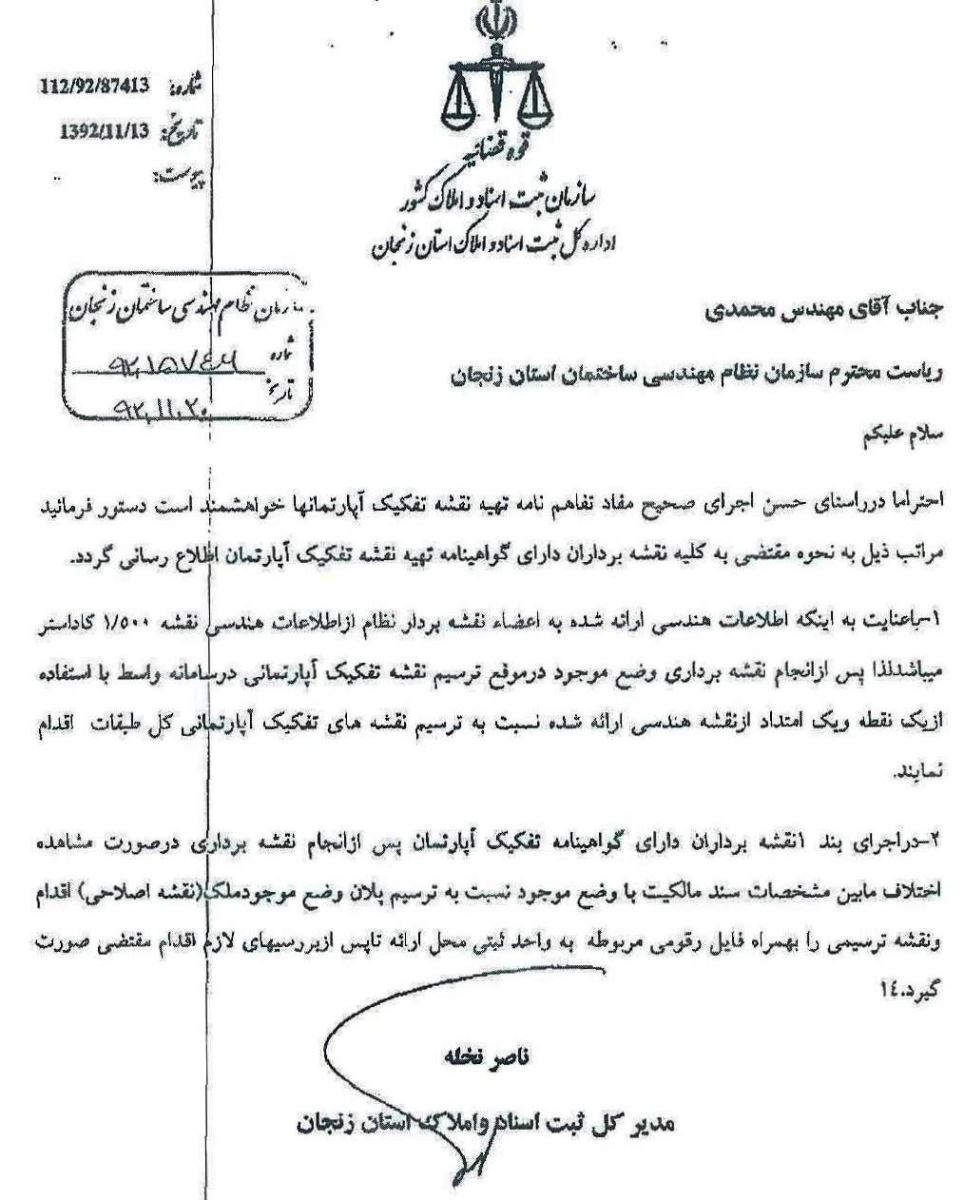 شماره: 112/92/87413
تاریخ: 1392/11/13
پیوست: ..
قوه قضائیه
سازمان ثبت اسناد و املاک کشور
اداره کل ثبت اسناد و املاک استان زنجان
سازمان نظام مهندسی ساختمان زنجان
شماره
تاریخ ۹۲.۱۱.۲۰
جناب آقای مهندس محمدی
ریاست محترم سازمان نظام مهندسی ساختمان استان زنجان
سلام علیکم
احتراما درراستای حسن اجرای صحیح مفاد تفاهم نامه تهیه نقشه تفکیک آپارتمانها خواهشمند است دستور فرمائید
مراتب ذیل به نحوه مقتضی به کلیه نقشه برداران دارای گواهینامه تهیه نقشه تفکیک آپارتمان اطلاع رسانی گردد.
۱-باعنایت به اینکه اطلاعات هندسی ارائه شده به اعضاء نقشه بردار نظام ازاطلاعات هندسی نقشه ۱/۵۰۰ کاداستر
میباشدلذا پس ازانجام نقشه برداری وضع موجود درموقع ترسیم نقشه تفکیک آپارتمانی درسامانه واسط با استفاده
ازیک نقطه ویک امتداد ازنقشه هندسی ارائه شده نسبت به ترسیم نقشه های تفکیک آپارتمانی کل طبقات اقدام
نمایند.
۲-دراجرای بند ۱نقشه برداران دارای گواهینامه تفکیک آپارتمان پس ازانجام نقشه برداری درصورت مشاهده
اختلاف مابین مشخصات سند مالکیت با وضع موجود نسبت به ترسیم پلان وضع موجودملک(نقشه اصلاحی) اقدام
ونقشه ترسیمی را بهمراه فایل رقومی مربوطه به واحد ثبتی محل ارائه تاپس ازبررسیهای لازم اقدام مقتضی صورت
گیرد.۱٤
ناصر نخله
مدیر کل ثبت اسناد واملاک استان زنجان